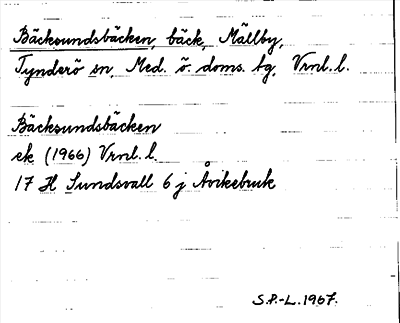 Bäcksundsbäcken, bäck, Mällby,
Tynderö sn, Med. ö. doms. tg, Vrnl. l.
Bäcksundsbäcken
ek (1966) Vrnl. l.
17 H Sundsvall 6 j Åvikebruk
S.P.-L. 1967.